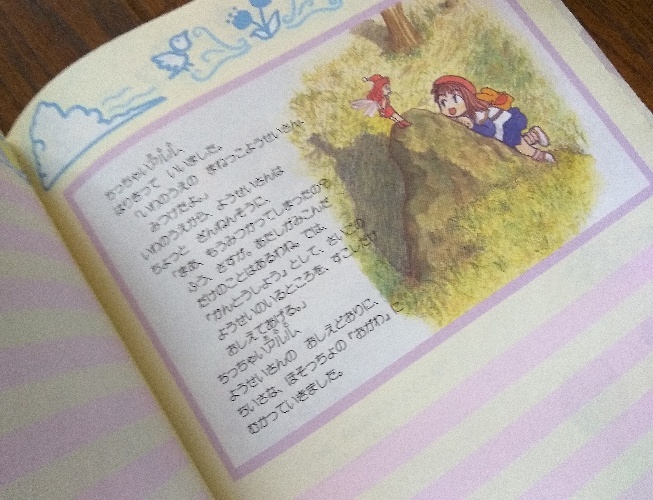 ちっちゃいアルル
はりきって いいました。
「いわのうえの まねっこようせいさん、
みつけたよ。」
いわのうえから、ようせいさんは
ちょっと ざんねんそうに、
「まあ、もうみつかってしまったのね。
ふう、さすが。あたしがみこんだ
だけのことはあるわね。では、
「かんとうしょう」として、さいごの
ようせいのいるところを、すこしだけ
おしえてあげる。」
ちっちゃいアルル
ようせいさんの おしえどおりに、
ちいさな、ほそっちょの「おがわ」に
むかっていきました。